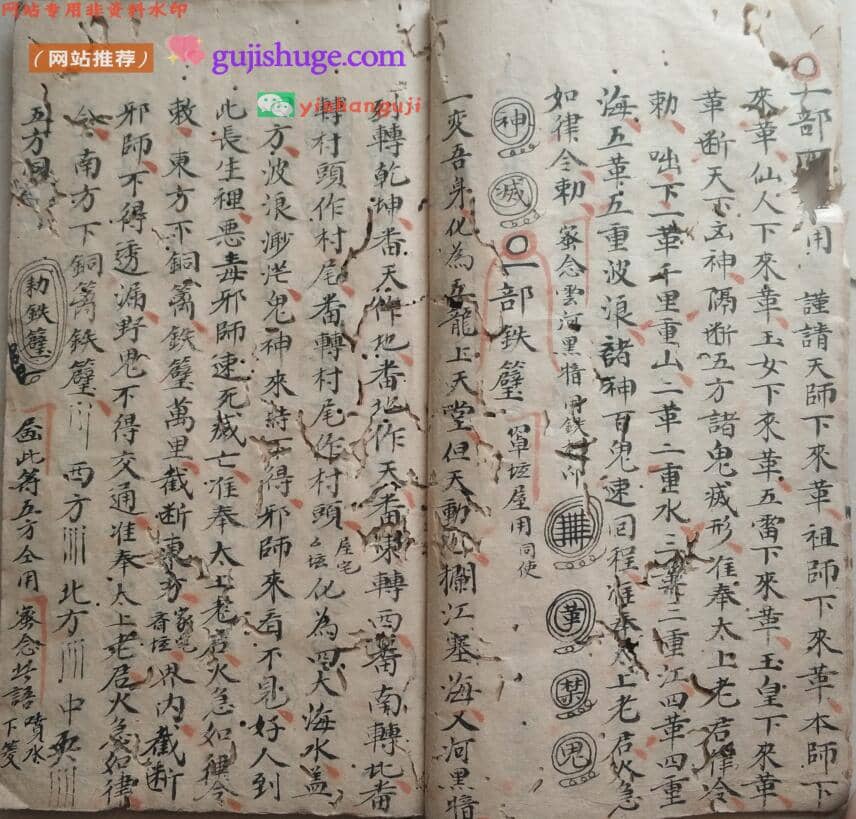 网站专用非资料水印
（网站推荐）
gujishuge.com
yishanguji
一部四用　謹請天師下來革祖師下來革本師下
來革仙人下來革玉女下來革五雷下來革玉皇下來革
革断天下五神隔断五方諸鬼滅形准奉太上老君律令
勅　咄下一革千里重山二革二重水三革三重江四革四重
海五革五重波浪諸神百鬼速回程准奉太上老君火急
如律令勅　密念雲河黑暗用鉄印　革　禁　鬼
神　滅　一部鉄籊　草坛屋用同使
一変吾身化為五龍上天堂但天動攔江塞海入河黑暗
轉乾坤番天作地番地作天番東轉西番南轉北番
轉村頭作村尾番轉村尾作村頭　屋宅　坛　化為四大海水盖
方波浪渺茫鬼神來時不得邪師來看不見好人到
此長生裡悪毒邪師速死滅亡准奉太上老君火急如律令
敕　東方下銅籊鉄籊萬里截断東方　家宅　坛　界内截断
邪師不得透漏野鬼不得交通准奉太上老君火急如律
令　南方下銅籊鉄籊　西方　北方　中央
五方同　勅鉄籊　此符五方全用　密念此語　噴水下